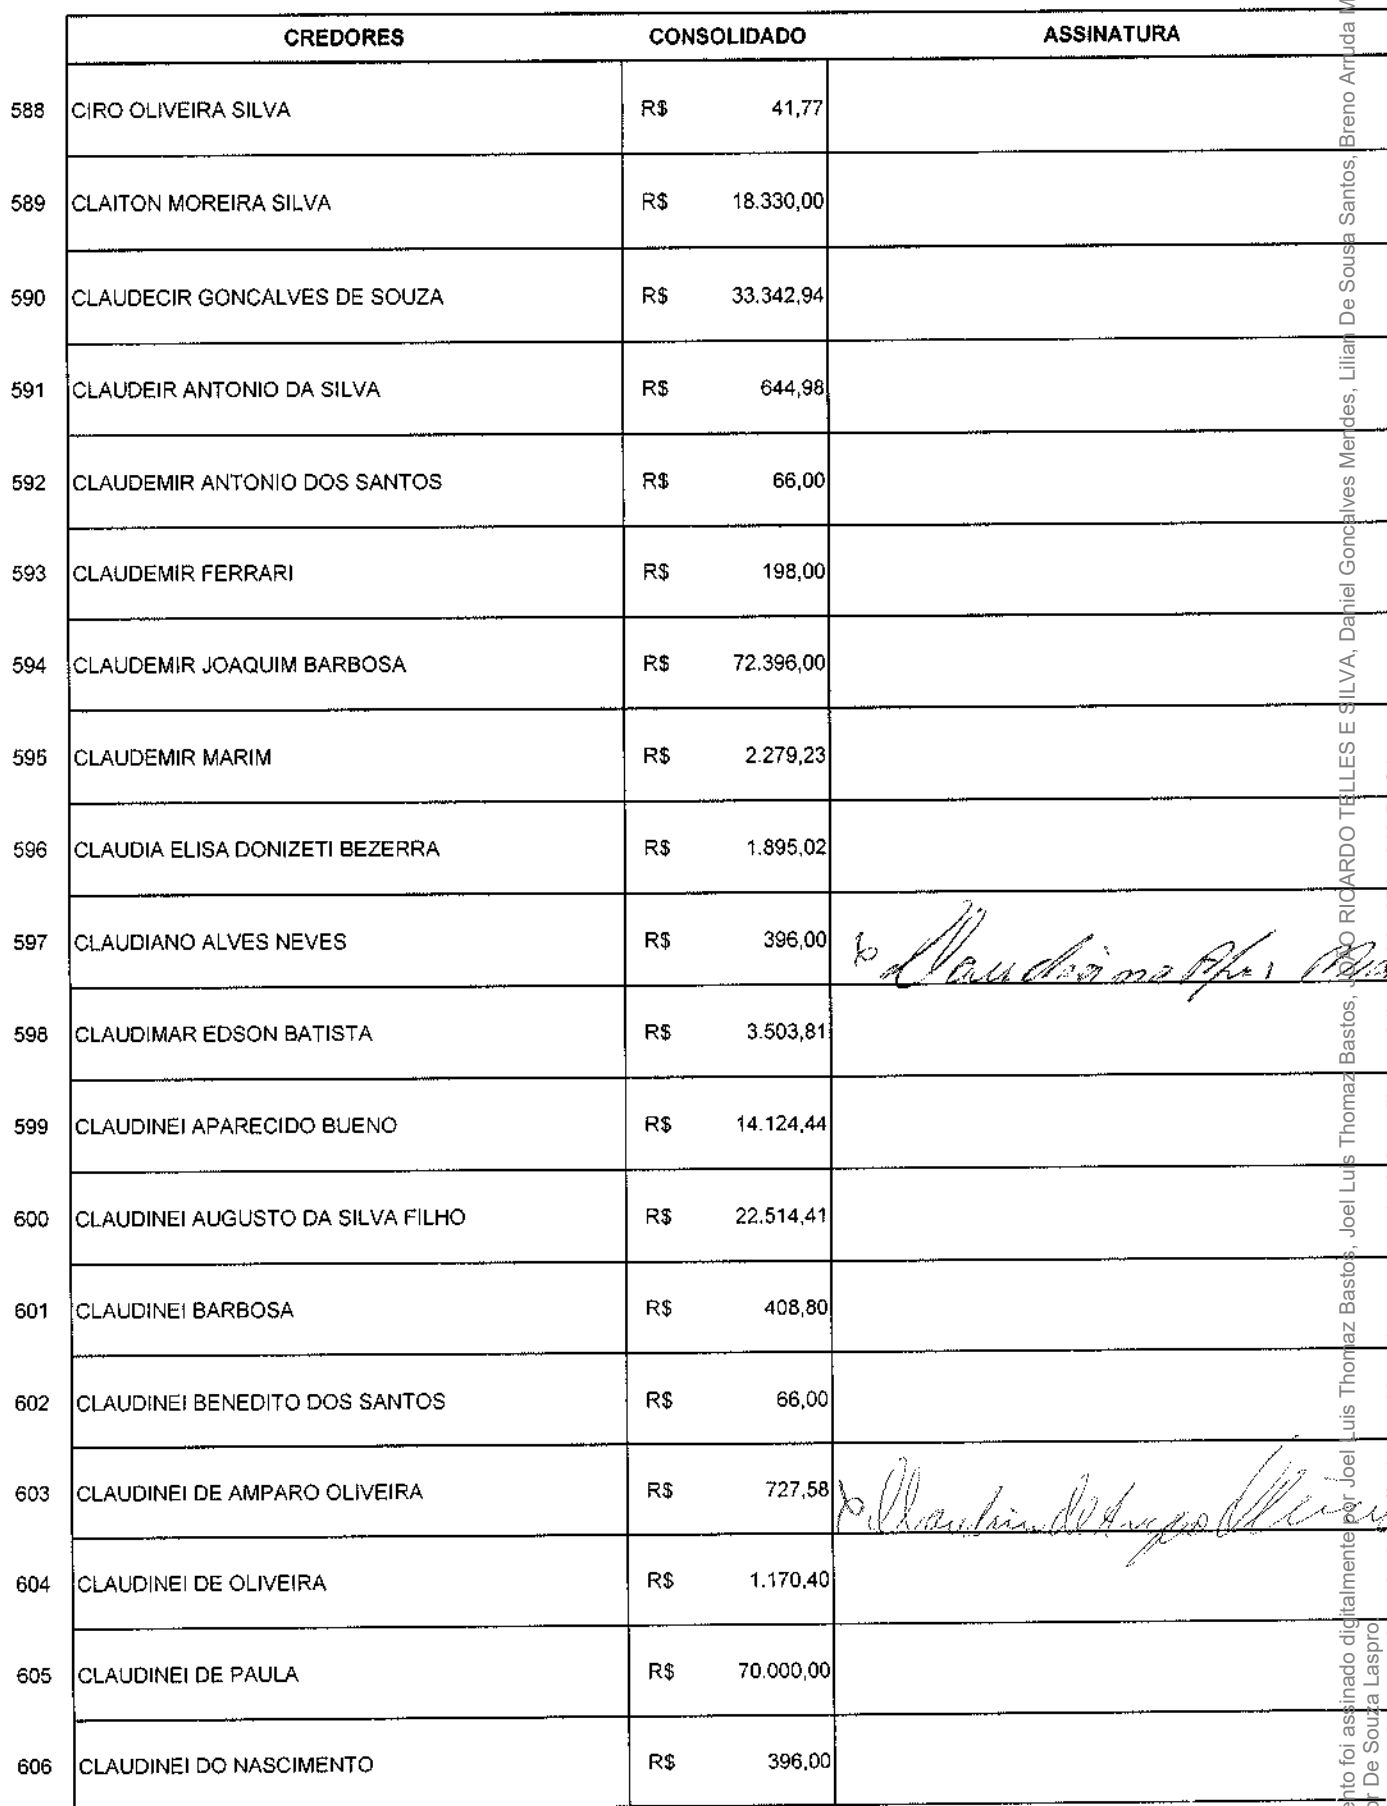 CREDORES CONSOLIDADO ASSINATURA
588 CIRO OLIVEIRA SILVA R$ 41,77
589 CLAITON MOREIRA SILVA R$ 18.330,00
590 CLAUDECIR GONCALVES DE SOUZA R$ 33.342,94
591 CLAUDEIR ANTONIO DA SILVA R$ 644,98
592 CLAUDEMIR ANTONIO DOS SANTOS R$ 66,00
593 CLAUDEMIR FERRARI R$ 198,00
594 CLAUDEMIR JOAQUIM BARBOSA R$ 72.396,00
595 CLAUDEMIR MARIM R$ 2.279,23
596 CLAUDIA ELISA DONIZETI BEZERRA R$ 1.895,02
597 CLAUDIANO ALVES NEVES R$ 396,00 Claudiano
598 CLAUDIMAR EDSON BATISTA R$ 3.503,81
599 CLAUDINEI APARECIDO BUENO R$ 14.124,44
600 CLAUDINEI AUGUSTO DA SILVA FILHO R$ 22.514,41
601 CLAUDINEI BARBOSA R$ 408,80
602 CLAUDINEI BENEDITO DOS SANTOS R$ 66,00
603 CLAUDINEI DE AMPARO OLIVEIRA R$ 727,58
604 CLAUDINEI DE OLIVEIRA R$ 1.170,40
605 CLAUDINEI DE PAULA R$ 70.000,00
606 CLAUDINEI DO NASCIMENTO R$ 396,00
nto foi assinado digitalmente por Joel Luis Thomaz Bastos, Joel Luis Thomaz Bastos, JOAO RICARDO TELLES E SILVA, Daniel Goncalves Mendes, Lilian De Sousa Santos, Breno Arruda M
or De Souza Laspro.